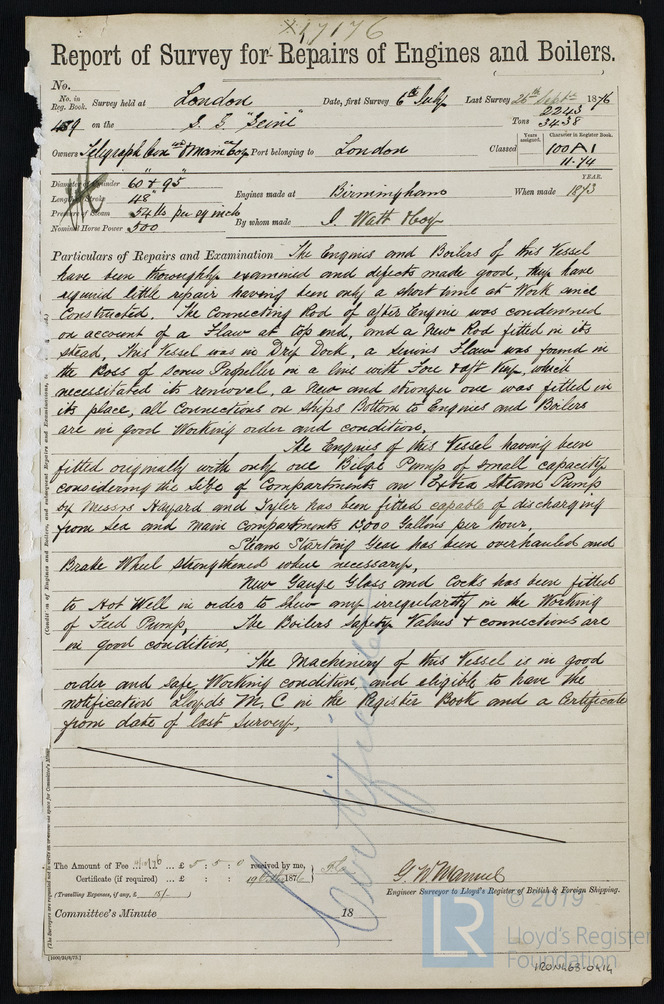 * 17176
Report of Survey for Repairs of Engines and Boilers.
No.
No. in Reg. Book. Survey held at London Date, first Survey 6th July Last Survey 26th Septr 1876
489 on the S. S. "Seine" Tons 2243 3438
Owners Telegraph Con tn & Main Coy Port belonging to London Classed Years assigned. Character in Register Book. 100 A 1 11-74
Diameter of Cylinder 60" & 95" Engines made at Birmingham When made YEAR. 1873
Length of Stroke 48"
Pressure of Steam 54 lbs per sq inch By whom made J. Watt & Coy
Nominal Horse Power 500
Particulars of Repairs and Examination The Engines and Boilers of this Vessel
have been thoroughly examined and defects made good, they have
required little repair having been only a short time at Work since
Constructed. The Connecting Rod of after Engine was condemned
on account of a Flaw at top end, and a New Rod fitted in its
stead, This Vessel was in Dry Dock, a serious Flaw was found in
the Boss of Screw Propeller in a line with Fore & aft Key, which
necessitated its removal, a New and stronger one was fitted in
its place, all Connections on ships Bottom to Engines and Boilers
are in good Working order and condition.
The Engines of this Vessel having been
fitted originally with only one Bilge Pump of small capacity
considering the Size of Compartments an Extra Steam Pump
by Messrs Hayard and Tyler has been fitted capable of discharging
from Sea and Main Compartments 15000 Gallons per hour.
Steam Starting Gear has been overhauled and
Brake Wheel strengthened where necessary,
New Gauge Glass and Cocks has been fitted
to Hot Well in order to shew any irregularity in the Working
of Feed Pump, The Boilers Safety Valves & connections are
in good condition,
The Machinery of this Vessel is in good
order and safe Working condition and eligible to have the
notification Lloyds M. C in the Register Book and a Certificate
from date of last Survey,
Certificate
The Amount of Fee ... £ 5 : 5 : 0 received by me,
Certificate (if required) ... £ : : 19 Oct 1876
(Travelling Expenses, if any, £ 15/- )
G W Manuel
Engineer Surveyor to Lloyd's Register of British & Foreign Shipping.
Committee's Minute 18
[1000/24/6/73.]
LR © 2019
Lloyd's Register
Foundation
IRON463-0414